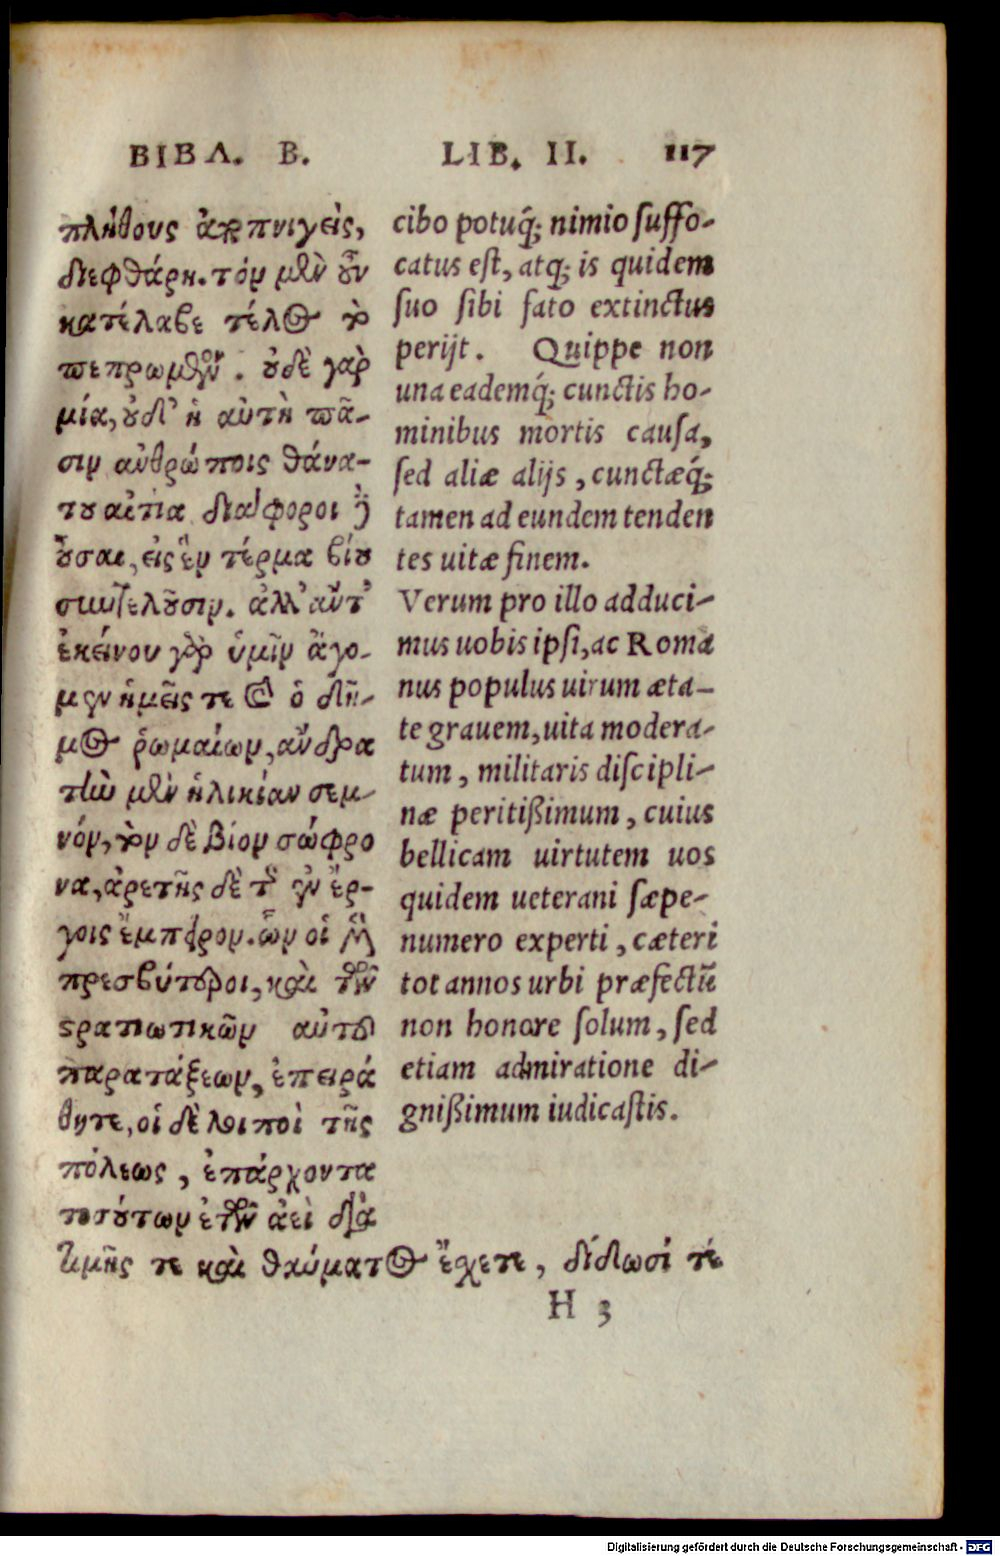 ΒΙΒΛ. Β.
πλήθους ἀποπνιγεὶς,
διεφθάρη. τὸν μὲν οὖν
κατέλαβε τέλος τὸ
πεπρωμένον. οὐδὲ γὰρ
μία, οὐδ' ἡ αὐτὴ πᾶ-
σιν ἀνθρώποις θάνα-
του αἰτία διάφοροι δ'
οὖσαι, εἰς ἓν τέρμα βίου
συντελοῦσιν. ἀλλ' ἀντ'
ἐκείνου γὰρ ὑμῖν ἄγο-
μεν ἡμεῖς τε καὶ ὁ δῆ-
μος ῥωμαίων, ἄνδρα
τὴν μὲν ἡλικίαν σεμ-
νόν, τὸν δὲ βίον σώφρο
να, ἀρετῆς δὲ τῆς ἐν ἔρ-
γοις ἔμπειρον. ὧν οἱ μὲν
πρεσβύτεροι, καὶ τῶν
στρατιωτικῶν αὐτοῦ
παρατάξεων, ἐπειρά
θητε, οἱ δὲ λοιποὶ τῆς
πόλεως, ἐπάρχοντα
τοσούτων ἐτῶν ἀεὶ διὰ
τιμῆς τε καὶ θαύματος ἔχετε, δίδωσί τέ
LIB. II. 117
cibo potuq́; nimio ſuffo-
catus eſt, atq; is quidem
ſuo ſibi fato extinctus
perijt. Quippe non
una eademq́; cunctis ho-
minibus mortis cauſa,
ſed aliæ alijs, cunctæq́;
tamen ad eundem tenden
tes uitæ finem.
Verum pro illo adduci-
mus uobis ipſi, ac Roma
nus populus uirum æta-
te grauem, uita modera-
tum, militaris diſcipli-
næ peritißimum, cuius
bellicam uirtutem uos
quidem ueterani ſæpe-
numero experti, cæteri
tot annos urbi præfectũ
non honore ſolum, ſed
etiam admiratione di-
gnißimum iudicaſtis.
H 3
Digitalisierung gefördert durch die Deutsche Forschungsgemeinschaft - DFG